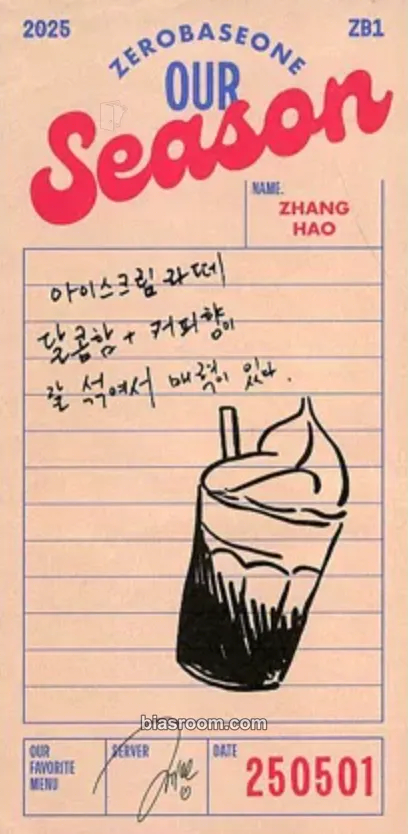 2025
ZB1
ZEROBASEONE
OUR
Season
NAME.
ZHANG
HAO
아이스크림 라떼
달콤함 + 커피향이
잘 섞여서 매력이 있다.
biasroom.com
OUR
FAVORITE
MENU
SERVER
DATE
250501